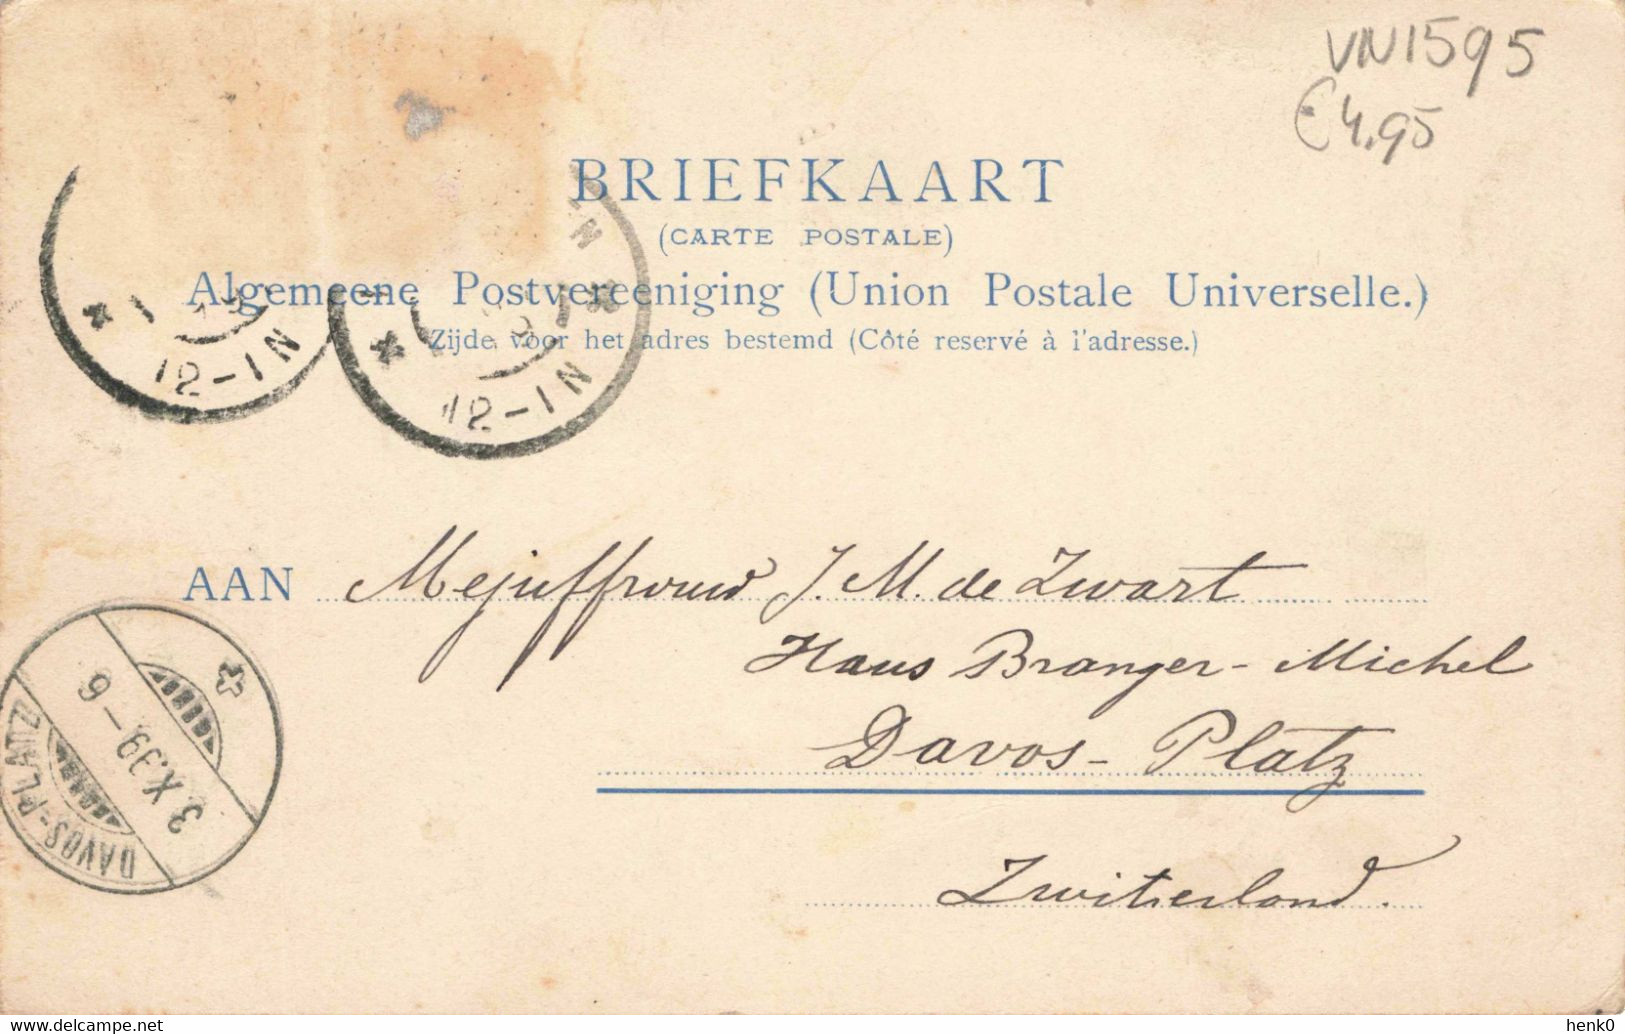 VN1595
€4,95
BRIEFKAART
(CARTE POSTALE)
Algemeene Postvereeniging (Union Postale Universelle.)
Zijde voor het adres bestemd (Côté reservé à l'adresse.)
12-1N
12-1N
AAN Mejuffrouw J. M. de Zwart
Haus Branger-Michel
Davos-Platz
Zwitserland.
3.X.99.-6
DAVOS-PLATZ
www.delcampe.net
henk0